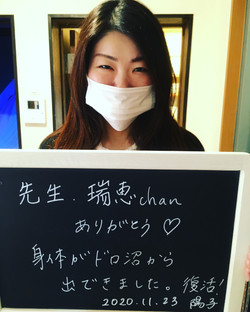 先生、瑞恵chan
ありがとう♡
身体がドロ沼から
出できました。復活！
2020.11.23 陽子